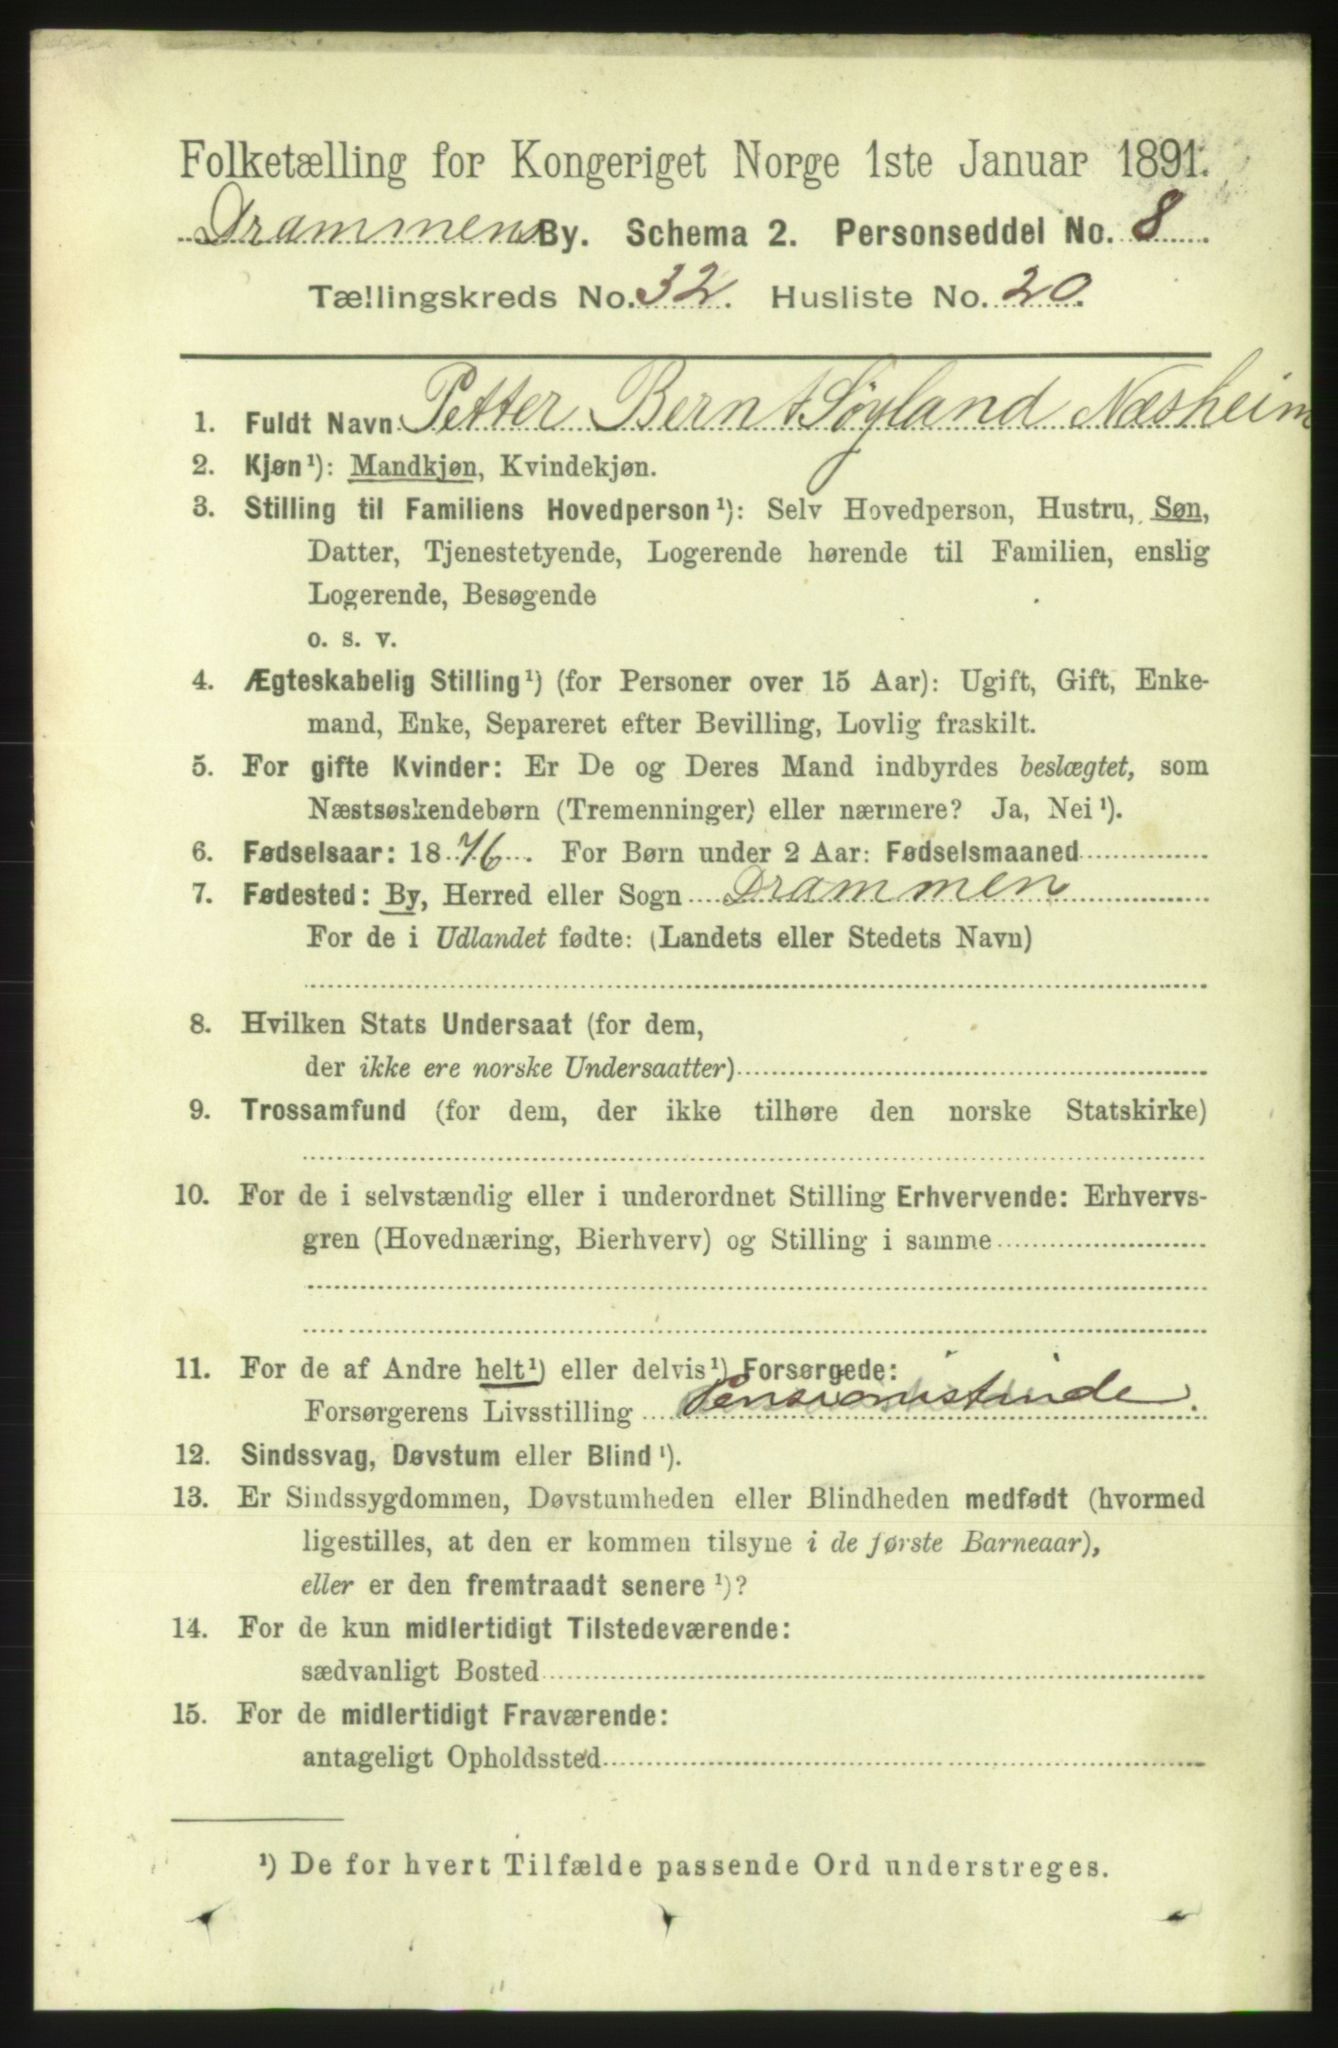 Folketælling for Kongeriget Norge 1ste Januar 1891.
Drammens By. Schema 2. Personseddel No. 8
Tællingskreds No. 32. Husliste No. 20.
1. Fuldt Navn Petter Bernt Søyland Næsheim
2. Kjøn¹): Mandkjøn, Kvindekjøn.
3. Stilling til Familiens Hovedperson¹): Selv Hovedperson, Hustru, Søn,
Datter, Tjenestetyende, Logerende hørende til Familien, enslig
Logerende, Besøgende
o. s. v.
4. Ægteskabelig Stilling¹) (for Personer over 15 Aar): Ugift, Gift, Enke-
mand, Enke, Separeret efter Bevilling, Lovlig fraskilt.
5. For gifte Kvinder: Er De og Deres Mand indbyrdes beslægtet, som
Næstsøskendebørn (Tremenninger) eller nærmere? Ja, Nei¹).
6. Fødselsaar: 1876. For Børn under 2 Aar: Fødselsmaaned
7. Fødested: By, Herred eller Sogn Drammen
For de i Udlandet fødte: (Landets eller Stedets Navn)
8. Hvilken Stats Undersaat (for dem,
der ikke ere norske Undersaatter)
9. Trossamfund (for dem, der ikke tilhøre den norske Statskirke)
10. For de i selvstændig eller i underordnet Stilling Erhvervende: Erhvervs-
gren (Hovednæring, Bierhverv) og Stilling i samme
11. For de af Andre helt¹) eller delvis¹) Forsørgede:
Forsørgerens Livsstilling Pensionistinde.
12. Sindssvag, Døvstum eller Blind¹).
13. Er Sindssygdommen, Døvstumheden eller Blindheden medfødt (hvormed
ligestilles, at den er kommen tilsyne i de første Barneaar),
eller er den fremtraadt senere¹)?
14. For de kun midlertidigt Tilstedeværende:
sædvanligt Bosted
15. For de midlertidigt Fraværende:
antageligt Opholdssted
¹) De for hvert Tilfælde passende Ord understreges.